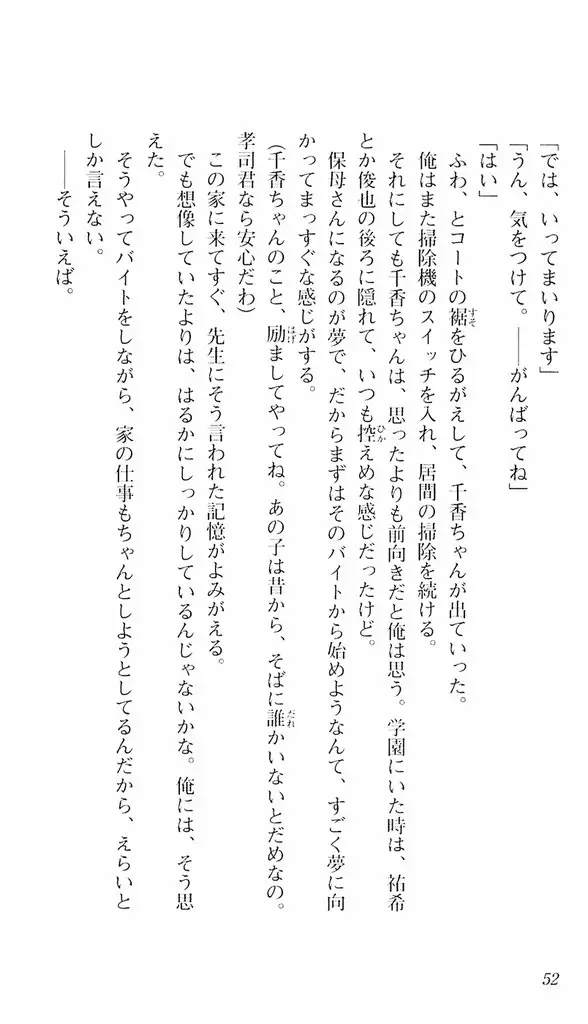 「では、いってまいります」
「うん、気をつけて。――がんばってね」
「はい」
ふわ、とコートの裾をひるがえして、千香ちゃんが出ていった。
俺はまた掃除機のスイッチを入れ、居間の掃除を続ける。
それにしても千香ちゃんは、思ったよりも前向きだと俺は思う。学園にいた時は、祐希
とか俊也の後ろに隠れて、いつも控えめな感じだったけど。
保母さんになるのが夢で、だからまずはそのバイトから始めようなんて、すごく夢に向
かってまっすぐな感じがする。
(千香ちゃんのこと、励ましてやってね。あの子は昔から、そばに誰かいないとだめなの。
孝司君なら安心だわ)
この家に来てすぐ、先生にそう言われた記憶がよみがえる。
でも想像していたよりは、はるかにしっかりしているんじゃないかな。俺には、そう思
えた。
そうやってバイトをしながら、家の仕事もちゃんとしようとしてるんだから、えらいと
しか言えない。
――そういえば。
52